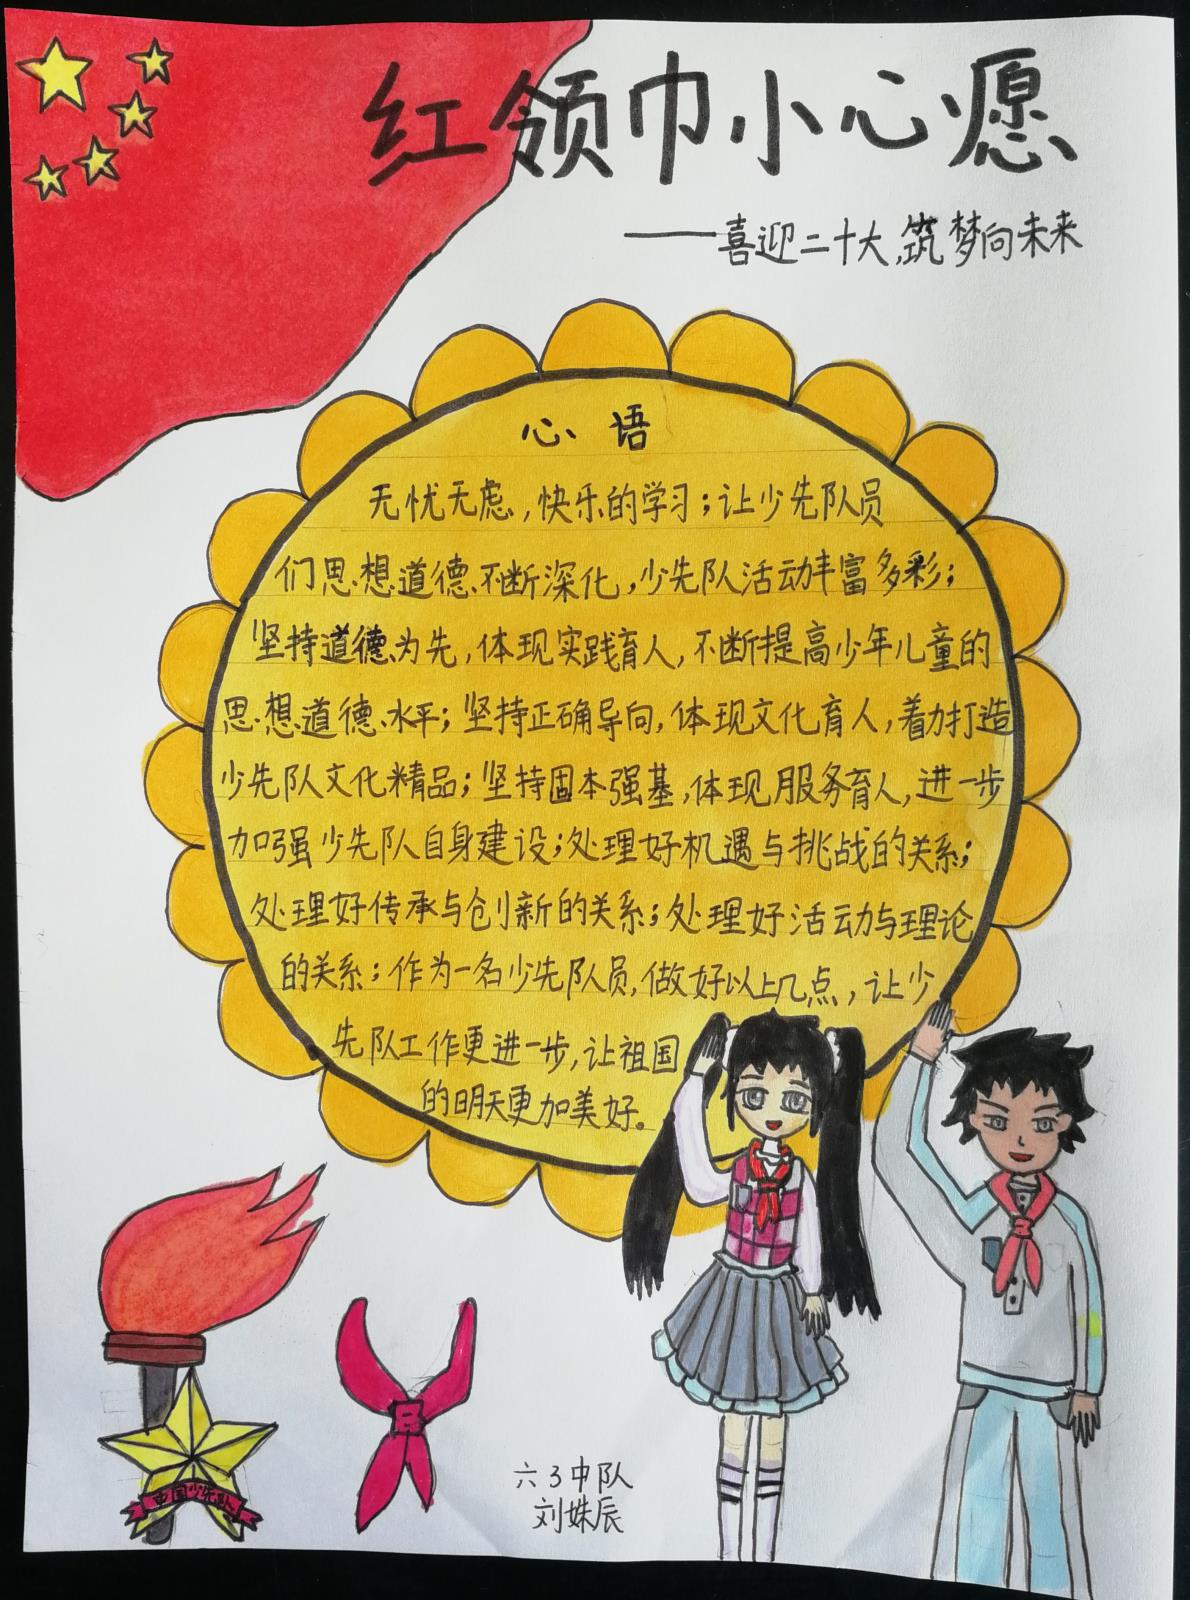 红领巾小心愿
——喜迎二十大,筑梦向未来
心语
无忧无虑,快乐的学习;让少先队员
们思想道德不断深化,少先队活动丰富多彩;
坚持道德为先,体现实践育人,不断提高少年儿童的
思想道德水平;坚持正确导向,体现文化育人,着力打造
少先队文化精品;坚持固本强基,体现服务育人,进一步
加强少先队自身建设;处理好机遇与挑战的关系;
处理好传承与创新的关系;处理好活动与理论
的关系;作为一名少先队员,做好以上几点,让少
先队工作更进一步,让祖国
的明天更加美好。
中国少先队
六3中队
刘姝辰